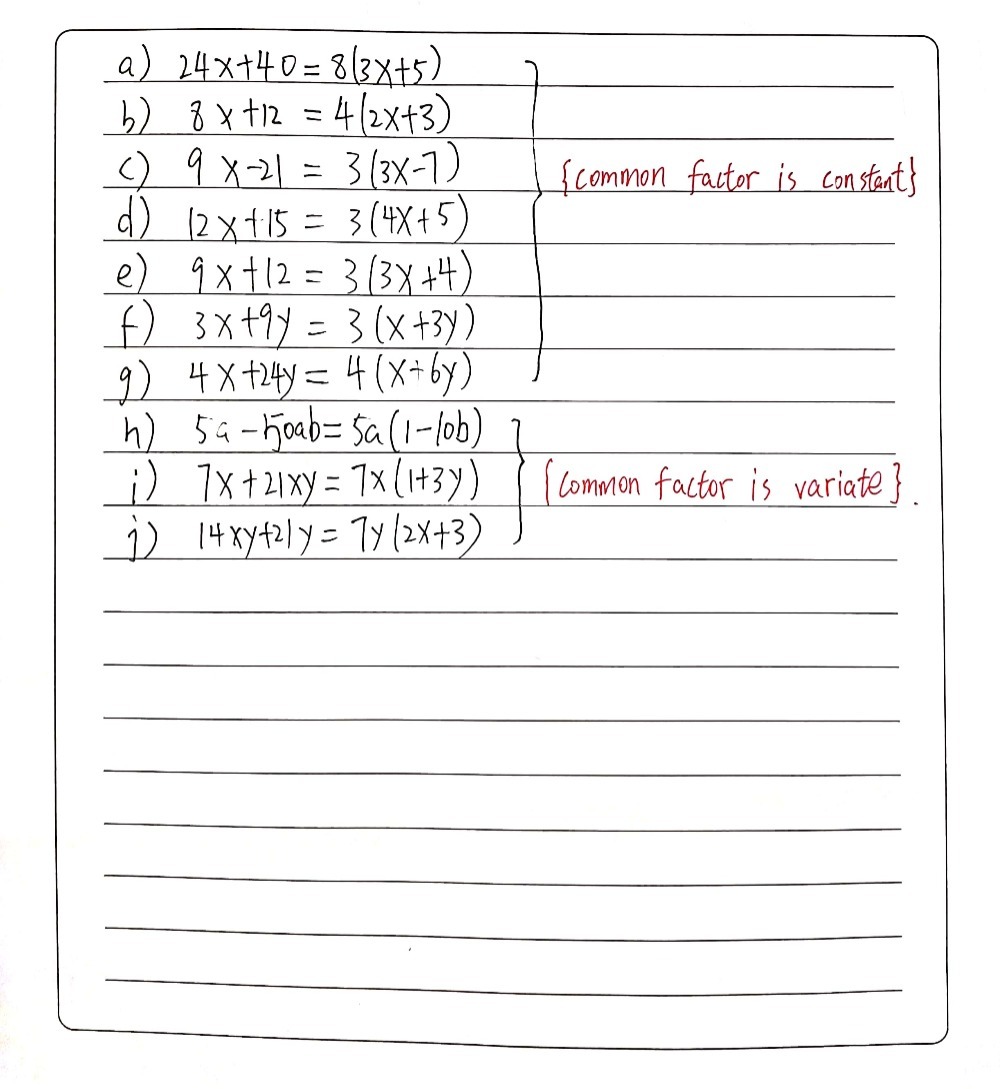 a) 24x+40=8(3x+5)
b) 8x+12=4(2x+3)
c) 9x-21=3(3x-7) {common factor is constant}
d) 12x+15=3(4x+5)
e) 9x+12=3(3x+4)
f) 3x+9y=3(x+3y)
g) 4x+24y=4(x+6y)
h) 5a-50ab=5a(1-10b)
i) 7x+21xy=7x(1+3y) {common factor is variate}.
j) 14xy+21y=7y(2x+3)